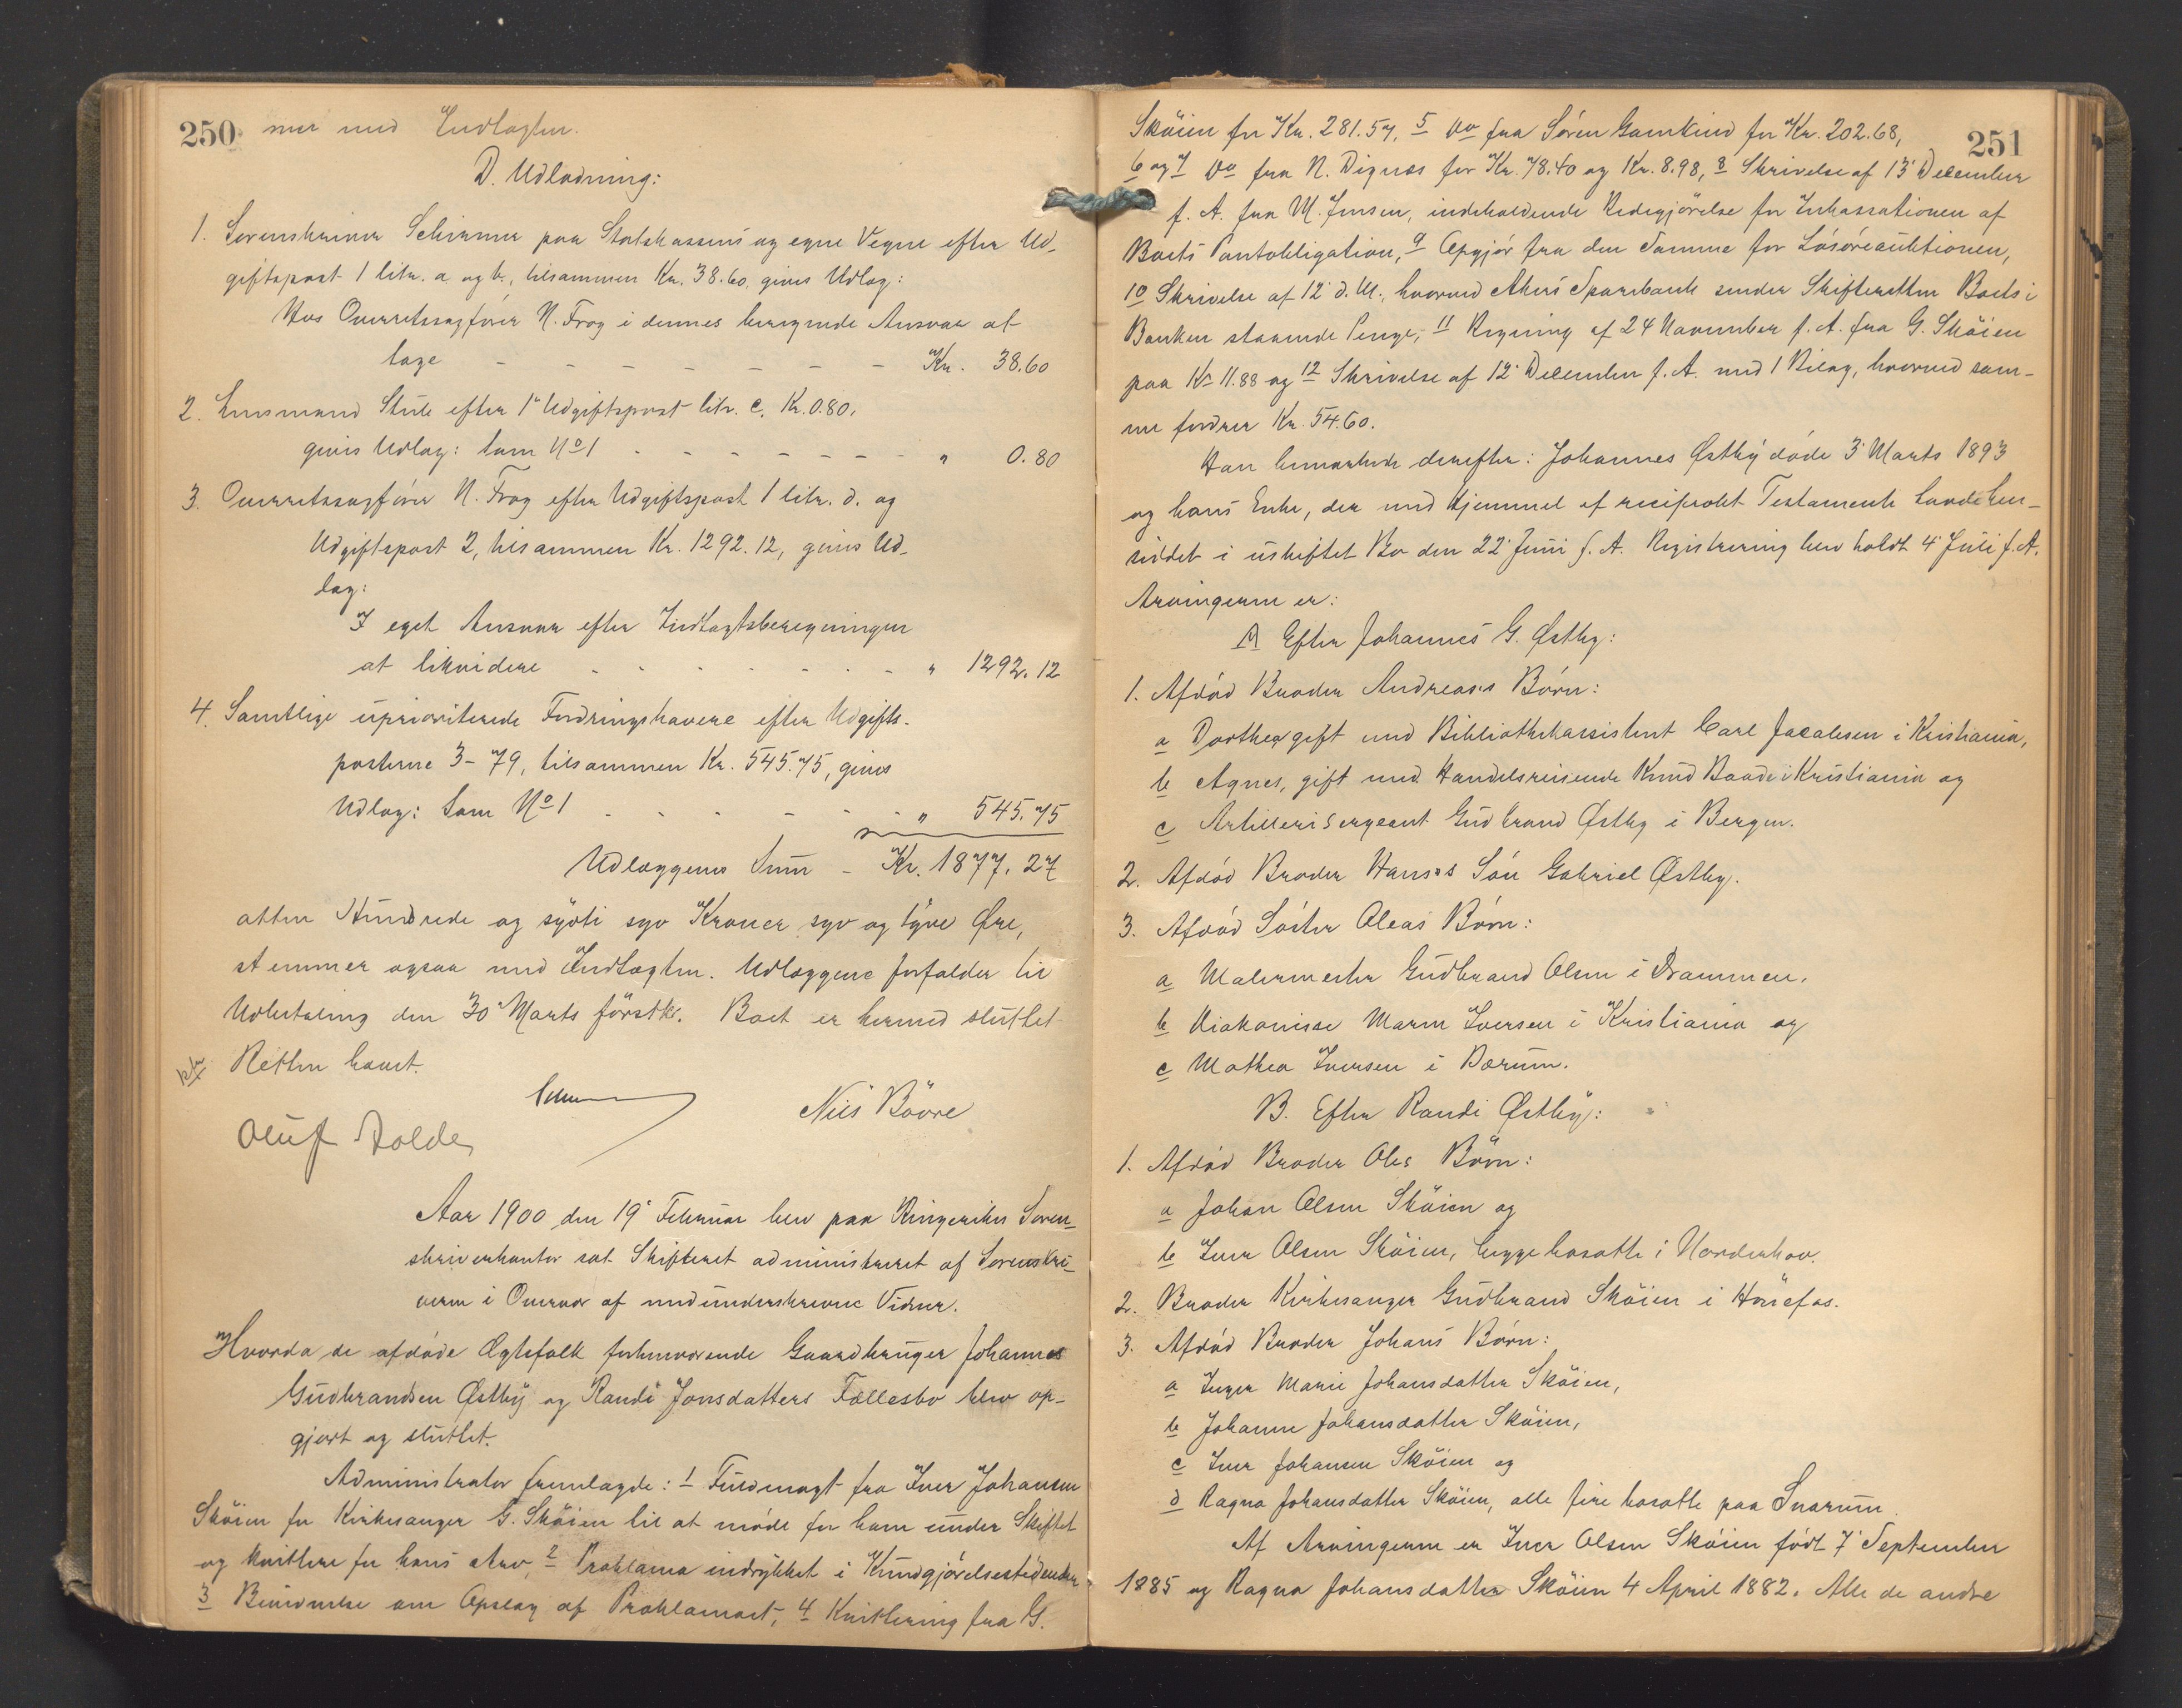 250 mer med Indtægten.
D. Udlodning:
1. Sorenskriver Schirmer paa Statskassens og egne Vegne efter Ud-
giftspost 1 litr. a og b, tilsammen Kr. 38.60, gives Udlæg:
Hos Overretssagfører N. Frog i dennes beregnede Ansvar at
tage - - - - - - - Kr. 38.60
2. Lensmand Stub efter 1' Udgiftspost litr. c. Kr. 0.80,
gives Udlæg: Som No 1 - - - - - - - " 0.80
3. Overretssagfører N. Frog efter Udgiftspost 1 litr. d. og
Udgiftspost 2, tilsammen Kr. 1292.12, gives Ud-
læg:
I eget Ansvar efter Indtægtsberegningen
at likvidere - - - - - - - " 1292.12
4. Samtlige uprioriterede Fordringshavere efter Udgifts-
posterne 3-79, tilsammen Kr. 545.75, gives
Udlæg: Som No 1 - - - - - " 545.75
Udlæggenes Sum - Kr. 1877.27
atten Hundrede og sytti syv Kroner syv og tyve Øre,
stemmer ogsaa med Indtægten. Udlæggene forfalder til
Udbetaling den 30' Marts førstk. Boet er hermed sluttet
Retten hævet.
Nils Bövre
Oluf Holde
Aar 1900 den 19' Februar blev paa Ringerikes Soren-
skriverkontor sat Skifteret administreret af Sorenskri-
veren i Overvær af medunderskrevne Vidner.
Hvorda de afdøde Ægtefolk forhenværende Gaardbruger Johannes
Gudbrandsen Østby og Randi Jonsdatters Fællesbo blev op-
gjort og sluttet.
Administrator fremlagde: 1 Fuldmagt fra Iver Johansen
Skøien for Kirkesanger G. Skøien til at møde for ham under Skiftet
og kvittere for hans Arv, 2 Proklama indrykket i Kundgjørelsestidende,
3 Bevidnelse om Opslag af Proklamaet, 4 Kvittering fra G.
251
Skøien for Kr. 281.57, 5 do fra Søren Gamkind for Kr. 202.68,
6 og 7 do fra N. Dignæs for Kr. 78.40 og Kr. 8.98, 8 Skrivelse af 13' December
f. A. fra M. Jensen, indeholdende Redegjørelse for Inkassationen af
Boets Pantobligation, 9 Opgjør fra den Samme for Løsøreauktionen,
10 Skrivelse af 12' d. M., hvorved Akers Sparebank sender Skifteretten Boets i
Banken staaende Penge, 11 Regning af 24 November f. A. fra G. Skøien
paa Kr 11.88 og 12 Skrivelse af 12' December f. A. med 1 Bilag, hvorved sam-
me fordrer Kr. 54.60.
Han bemærkede derefter: Johannes Østby døde 3' Marts 1893
og hans Enke, der med Hjemmel af reciprokt Testamente havde hen-
siddet i uskiftet Bo den 22' Juni f. A. Registrering blev holdt 4' Juli f. A.
Arvingerne er:
A Efter Johannes G. Østby:
1. Afdød Broder Andreas's Børn:
a Dorthea gift med Bibliothekassistent Carl Jacobsen i Kristiania,
b Agnes, gift med Handelsreisende Knud Baade i Kristiania og
c Artillerisergeant Gudbrand Østby i Bergen.
2. Afdød Broder Hans's Søn Gabriel Østby.
3. Afdød Søster Oleas Børn:
a Malermester Gudbrand Olsen i Drammen,
b Diakonisse Maren Iversen i Kristiania og
c Mathea Iversen i Bærum.
B. Efter Randi Østby:
1. Afdød Broder Oles Børn:
a Johan Olsen Skøien og
b Iver Olsen Skøien, begge bosatte i Norderhov.
2. Broder Kirkesanger Gudbrand Skøien i Hønefos.
3. Afdød Broder Johans Børn:
a Inger Marie Johansdatter Skøien,
b Johanne Johansdatter Skøien,
c Iver Johansen Skøien og
d Ragna Johansdatter Skøien, alle fire bosatte paa Snarum.
Af Arvingerne er Iver Olsen Skøien født 7' September
1885 og Ragna Johansdatter Skøien 4 April 1882. Alle de andre